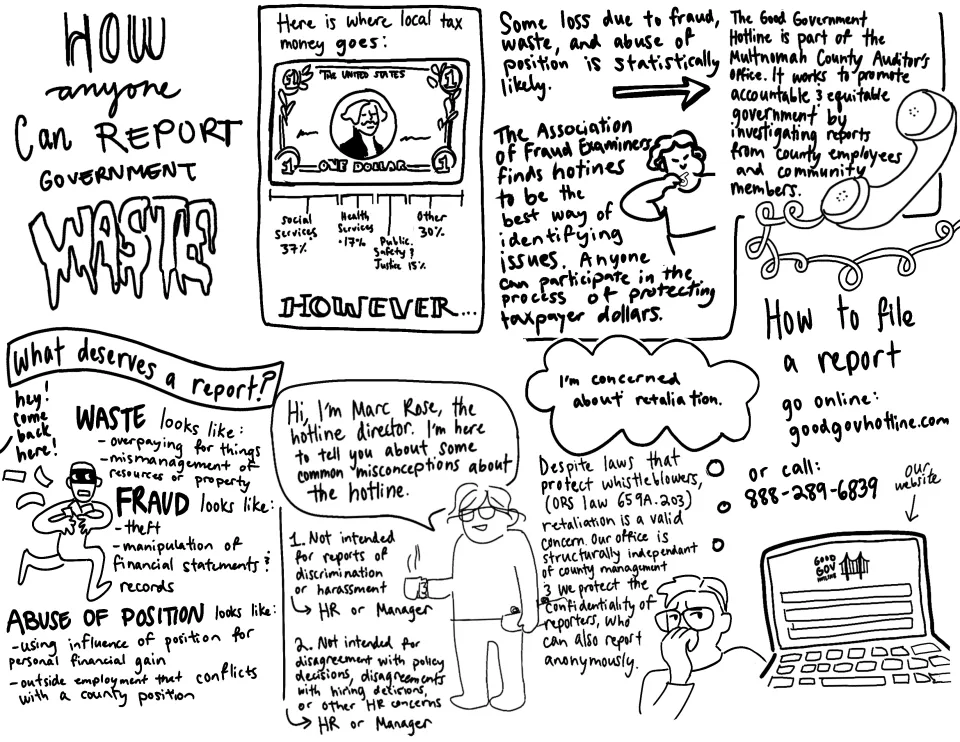 HOW
anyone
Can REPORT
GOVERNMENT
WASTE
Here is where local tax
money goes:
THE UNITED STATES
1
1
ONE DOLLAR
1
1
Social
Services
37%
Health
Services
17%
Public
Safety &
Justice 15%
Other
30%
HOWEVER...
Some loss due to fraud,
waste, and abuse of
position is statistically
likely.
The Association
of Fraud Examiners
finds hotines
to be the
best way of
identifying
issues. Anyone
can participate in the
process of protecting
taxpayer dollars.
The Good Government
Hotline is part of the
Multnomah County Auditor's
Office. It works to promote
accountable & equitable
government by
investigating reports
from county employees
and community
members.
What deserves a report?
hey!
come
back
here!
WASTE looks like:
- overpaying for things
- mismanagement of
resources or property
FRAUD looks like:
- theft
- manipulation of
financial statements &
records
ABUSE OF POSITION looks like:
- using influence of position for
personal financial gain
- outside employment that conflicts
with a county position
Hi, I'm Marc Rose, the
hotline director. I'm here
to tell you about some
common misconceptions about
the hotline.
1. Not intended
for reports of
discrimination
or harassment
↳ HR or Manager
2. Not intended for
disagreement with policy
decisions, disagreements
with hiring decisions,
or other HR concerns
↳ HR or Manager
I'm concerned
about retaliation.
Despite laws that
protect whistleblowers,
(ORS law 659A.203)
retaliation is a valid
concern. Our office is
structurally independant
of county management
& we protect the
confidentiality of
reporters, who
can also report
anonymously.
How to file
a report
go online:
goodgovhotline.com
or call:
888-289-6839
our
website
GOOD
GOV
HOTLINE